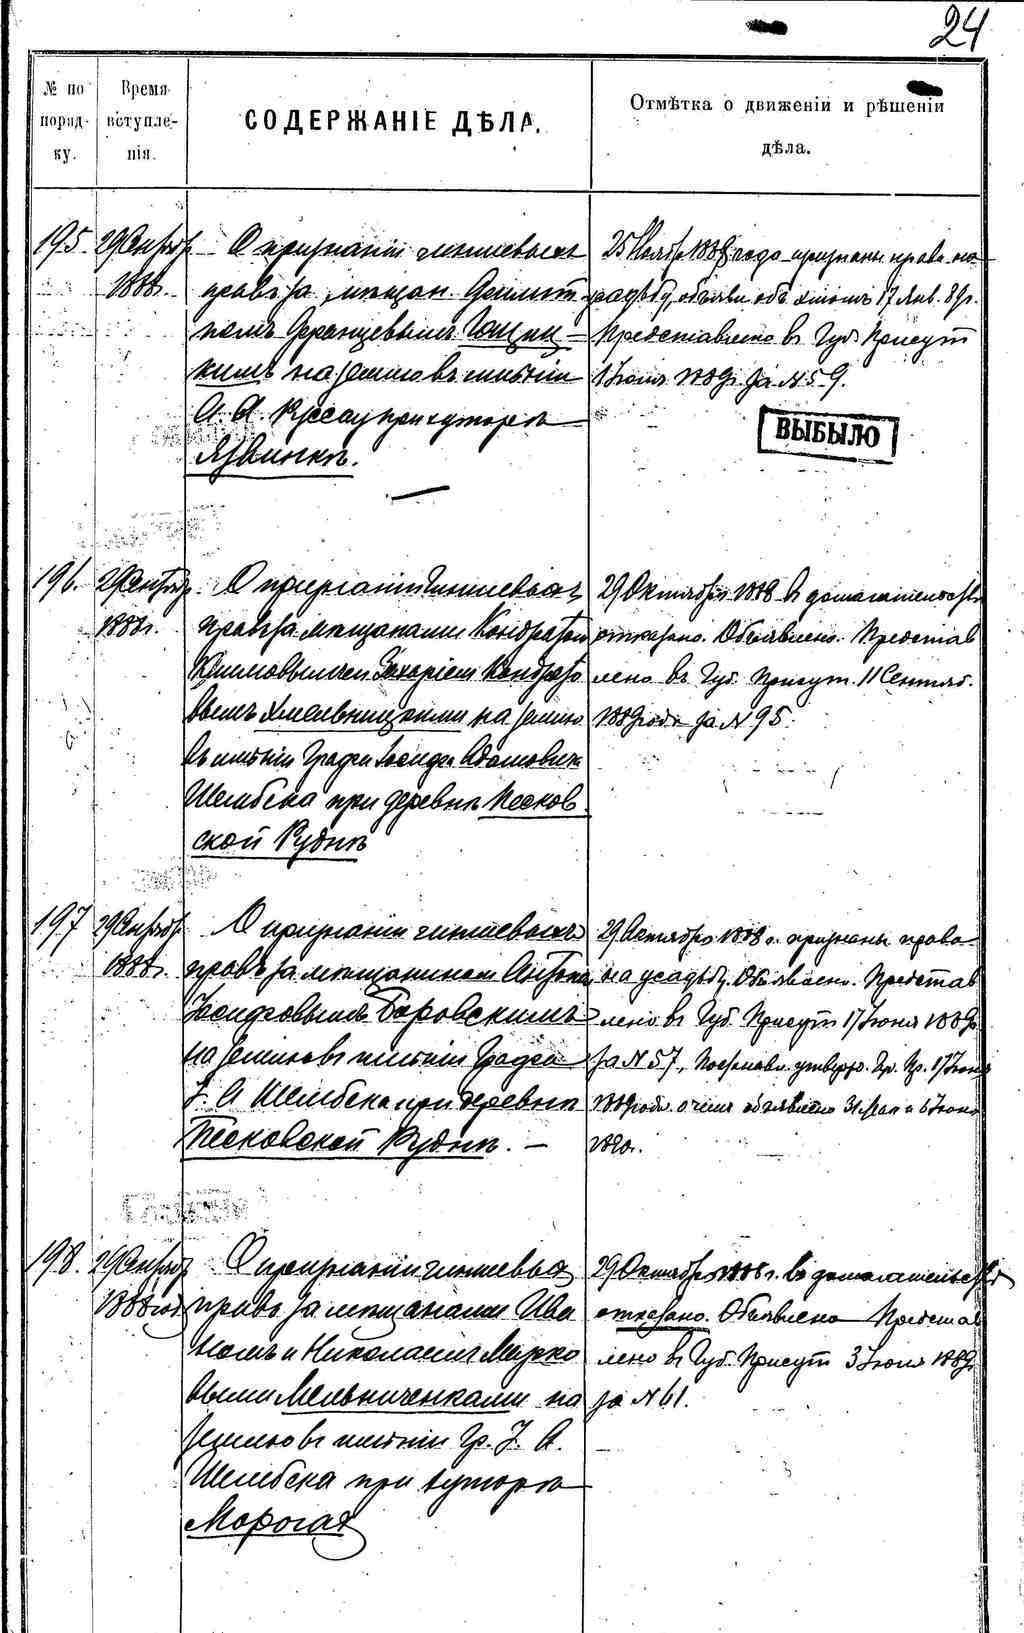 24
№ по порядку.
Время вступленія.
СОДЕРЖАНІЕ ДѢЛА.
Отмѣтка о движеніи и рѣшеніи
дѣла.
195.
29 Октябр
1888г.
О признаніи чиншевыхъ
правъ за мѣщан.
помъ Францевымъ
кимъ на землю въ имѣніи
А. А. при хуторѣ
Язвинкѣ.
25 Ноябр 1888 года признаны права на
усадьбу, объявл. объ этомъ 17 Янв. 89г.
Представлено въ Губ. Присут
1 Іюня 1889г. за № 59.
ВЫБЫЛО
196.
29 Октябр
1888г.
О признаніи чиншевыхъ
правъ за мѣщанами Кондратом
Климовымъ и Захаріем Кондрато
вымъ Хмельницкими на землю
въ имѣніи Графа Іосифа Адамовича
Шембека при деревнѣ Песков
ской Руднѣ
29 Октября 1888 въ домогательствѣ
отказано. Объявлено. Представ
лено въ Губ. Присут. 11 Сентяб.
1889 года за № 95.
197
29 Октябр
1888г.
О признаніи чиншевыхъ
правъ за мѣщанином Антоном
Іосифовымъ Боровскимъ
на землю въ имѣніи Графа
І. А Шембека при деревнѣ
Песковской Руднѣ. —
29 Октября 1888 г. признаны права
на усадьбу. Объявлено. Представ
лено въ Губ. Присут 17 Іюня 1889г.
за № 57, Постановл. утвержд. Гр. Пр. 17 Іюня
1889 года о чемъ объявлено 31 Мая и 6 Іюня
1890г.
198.
29 Октябр
1888 год
О признаніи чиншевых
правъ за мѣщанами Ива
номъ и Николаемъ Марко
выми Мельниченками на
землю въ имѣніи Гр. І. А.
Шембека при хуторѣ
Морогах
29 Октября 1888 г. въ домогательствѣ
отказано. Объявлено Представ
лено въ Губ. Присут 3 Іюня 1889г.
за № 61.